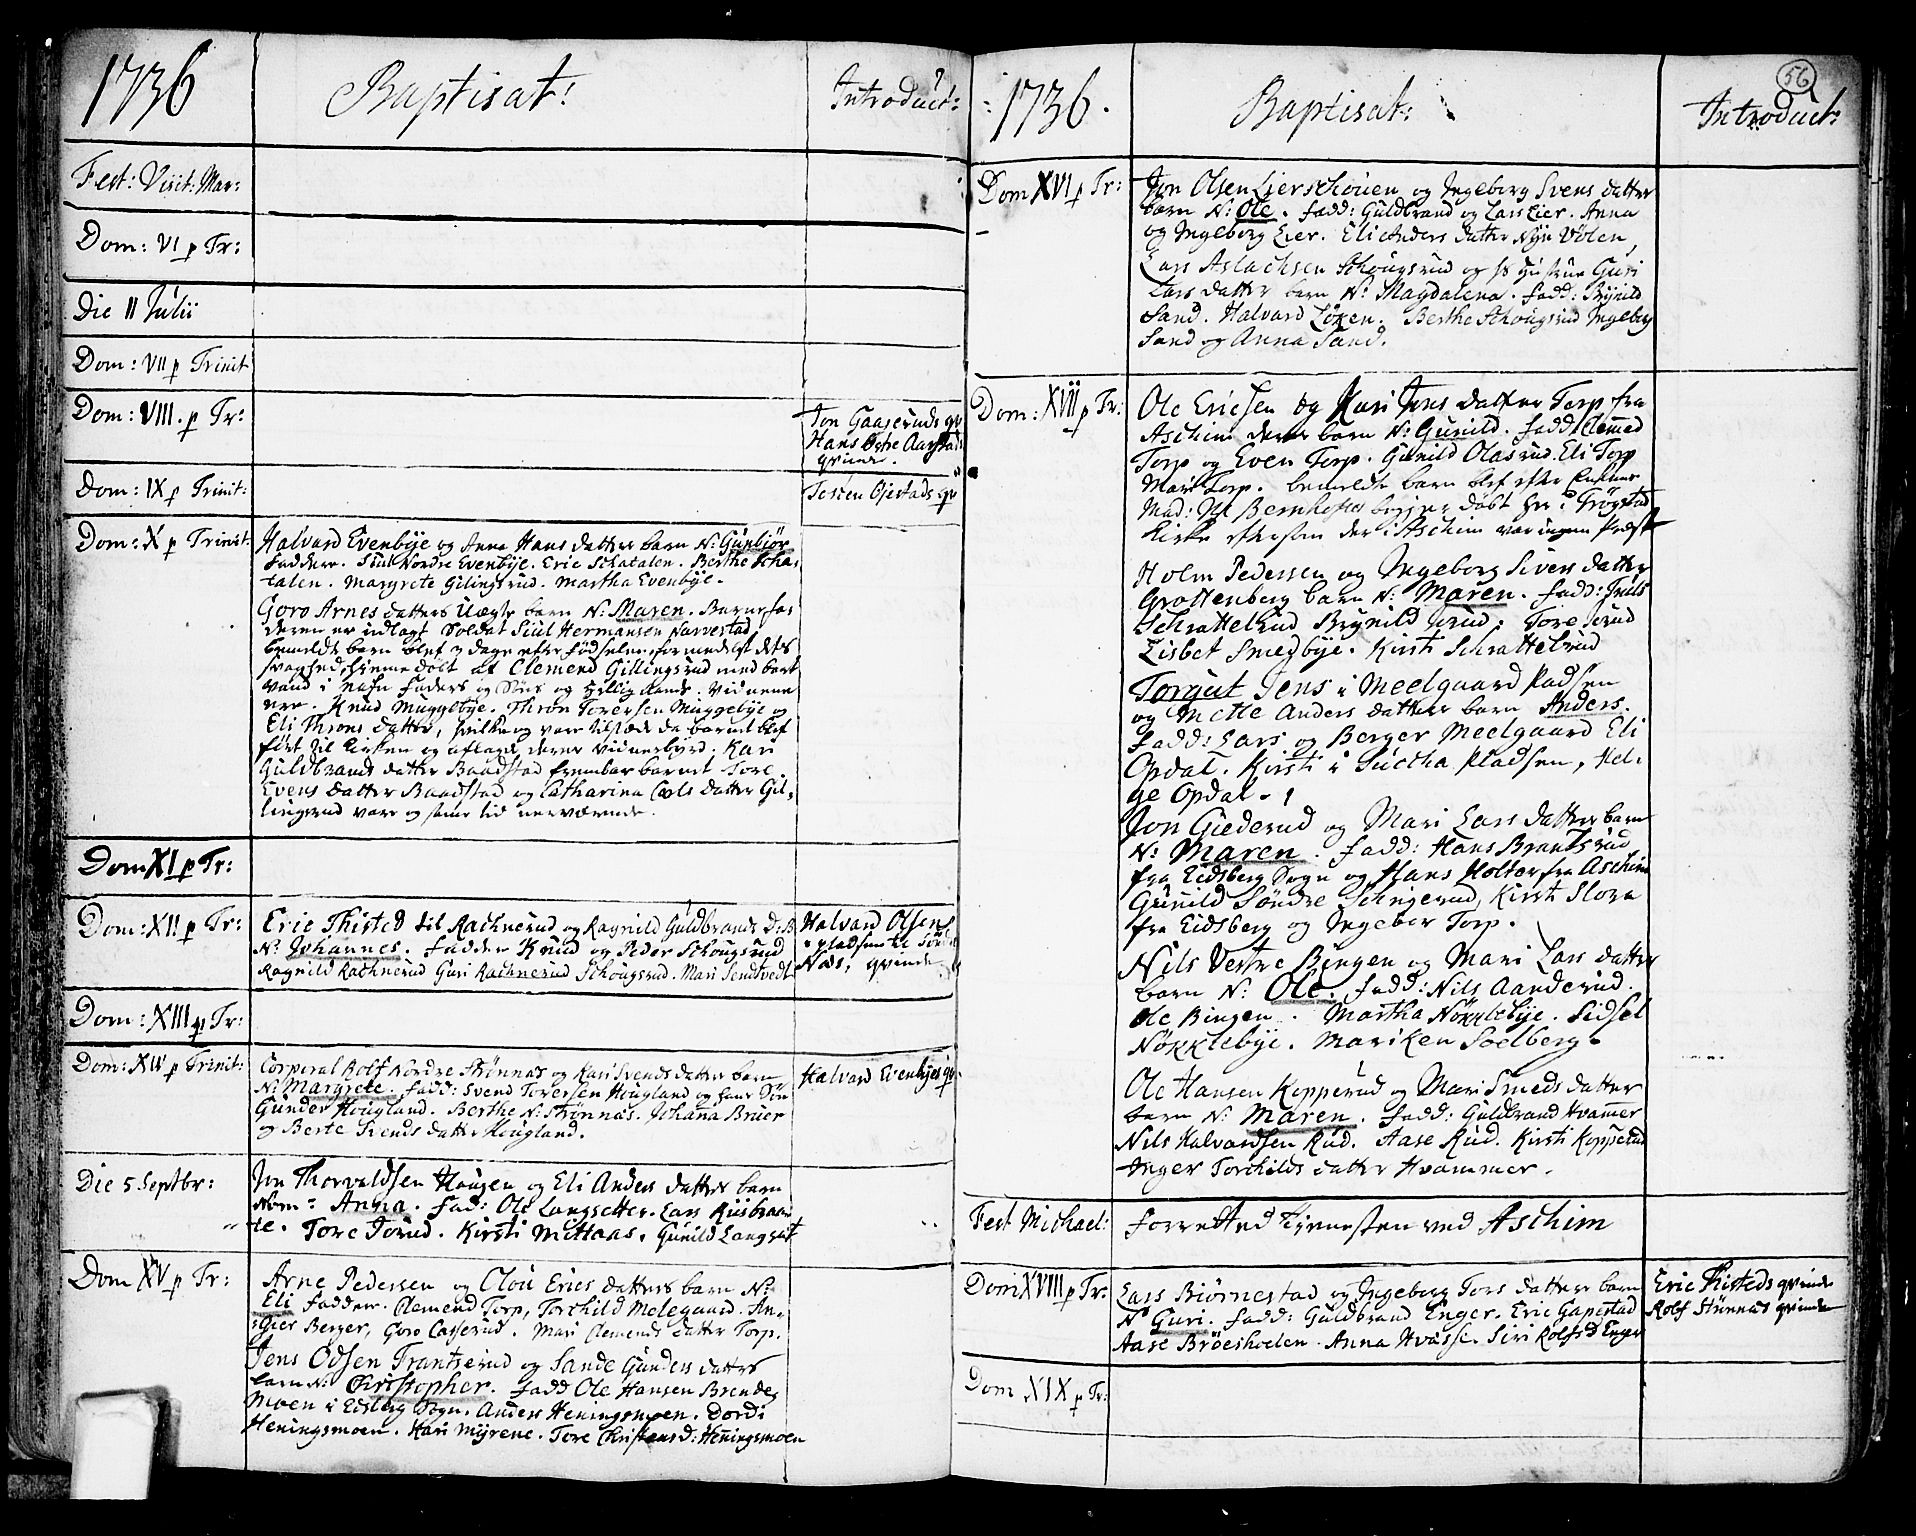 1736
Baptisat:
Introduct:
Fest: Visit: Mar:
Dom: VI p Tr:
Die 11 Julii
Dom: VII p Trinit
Dom: VIII. p Tr:
Jon Gaaseruds qv
Hans Aarstad
qvinde.
Dom: IX p Trinit:
Tosten Ojestads qv
Dom: X p Trinit:
Halvard Evenbye og Anne Hans datter barn N: Gunbiör
Faddere. Siul Nordre Evenbye. Eric Schatalen. Berthe Scha,
talen. Margrete Gilingsrud. Martha Evenbye.
Goro Arnes datters Uægte barn N: Maren. Barnefa,
deren er udlagt Soldat Siul Hermansen Narvestad
bemeldte barn blef 3 dage efter fødselen formedelst dets
svaghed hiemme døbt af Clemend Gillingsrud med bart
vand i Nafn Faders og Søns og Hellig Aands. Vidnerne
ere. Knud Muggebye. Thron Toresen Muggebye og
Eli Throns datter, hvilke og vare tilstæde da barnet blef
ført til kirken og aflagde deres vidnesbyrd. Kari
Guldbrands datter Baadstad frembar barnet Tore
Evens datter Baadstad og Catharina Carls datter Gil,
lingsrud vare og samme tid nerværende.
Dom XI p Tr:
Dom: XII p Tr:
Eric Thisted til Rachnerud og Ragnild Guldbrands D: B
N: Johannes. Fadder Knud og Peder Schougsrud
Ragnild Rachnerud Guri Rachnerud Schougsrud. Mari Sendtvedt
Halvard Olsens
i pladsen til Søndre
Næs, qvinde
Dom: XIII p Tr:
Dom: XIV p Trinit:
Corporal Rolf Nordre Strønnæs og Kari Svends datter barn
N: Margrete. Fadd: Svend Toresen Hougland og hans Søn
Gunder Hougland. Berthe N: Strønnæs. Johanna Bruer
og Berte Svends datter Hougland.
Halvard Evenbyes qv.
Die 5 Septbr:
Jon Thorvaldsen Haugen og Eli Anders datter barn
Nom: Anna. Fad: Ole Langsetter. Lars Riisbraa,
te. Tore Jorud. Kirsti Mithaas. Gunild Langsæt
Dom XV p Tr:
Arne Pedersen og Olou Erics datters barn N:
Eli Fadder. Clemend Torp, Torchild Melegaard. An,
Gier Berger, Goro Casserud. Mari Clemends datter Torp.
Jens Odsen Frantserud og Sande Gunders datter
barn N: Christopher. Fadd Ole Hansen Brende
Moen i Edsberg Sogn. Anders Heningsmoen. Dordi
Heningsmoen. Kari Myrene. Tore Christensd: Heningsmoen
1736.
Baptisat:
56
Introduct:
Dom XVI p Tr:
Jon Olsen Lierschouen og Ingeborg Svens datter
barn N: Ole. Fadd: Guldbrand og Lars Lier. Anna
og Ingeborg Lier. Eli Anders datter Nye Volen,
Lars Aslachsen Schougsrud og hs Hustrue Guri
Lars datter barn N: Magdalena. Fadd: Brynild
Sand. Halvard Løken. Berthe Schougsrud Ingeborg
Sand og Anna Sand.
Dom: XVII p Tr:
Ole Ericsen og Kari Jens datter Torp fra
Aschim deres barn N: Gunild. Fadd Clemed
Torp og Even Torp. Gunild Olasrud. Eli Torp
Mari Torp. bemeldte barn blef efter
Mad: Bernhofts begjer døbt her i Trøgstad
Kirke eftersom der i Aschim var ingen Præst
Holm Pedersen og Ingeborg Sivers datter
Grottenberg barn N: Maren. Fadd: Truls
Schrattelrud Brynild Jorud. Tore Jorud
Lisbet Smedbye. Kirsti Schrattelrud
Torgut Jens i Meelgaard Pladsen
og Mette Anders datter barn Anders.
Fadd: Lars og Berger Meelgaard Eli
Opdal. Kirsti i Suctha Pladsen, Hel,
ge Opdal.
Jon Giederud og Mari Lars datter barn
N: Maren. Fadd: Hans Brantsrud
fra Eidsberg Sogn og Hans Holter fra Aschim
Gunild Søndre Schigerud, Kirsti Slora
fra Eidsberg og Ingebor Torp.
Nils Vestre Bingen og Mari Lars datter
barn N: Ole. Fadd: Nils Aanderud.
Ole Bingen. Martha Nøkklebye. Sidsel
Nøkklebye. Mariken Soelberg.
Ole Hansen Kopperud og Mari Smeds datter
barn N: Maren. Fadd: Guldbrand Hvammer
Nils Halvardsen Rud. Aase Rud. Kirsti Kopperud
Inger Torchilds datter Hvammer.
Fest Michael:
Forrettted tjenesten ved Aschim
Dom XVIII p Tr:
Lars Biørnestad og Ingeborg Tors datter barn
N Guri. Fadd: Guldbrand Enger. Eric Gapestad
Aase Brøesholen. Anna Hvasse. Siri Rolfsd Enger
Eric Thisteds qvinde
Rolf Stønnæs qvinde
Dom XIX p Tr: